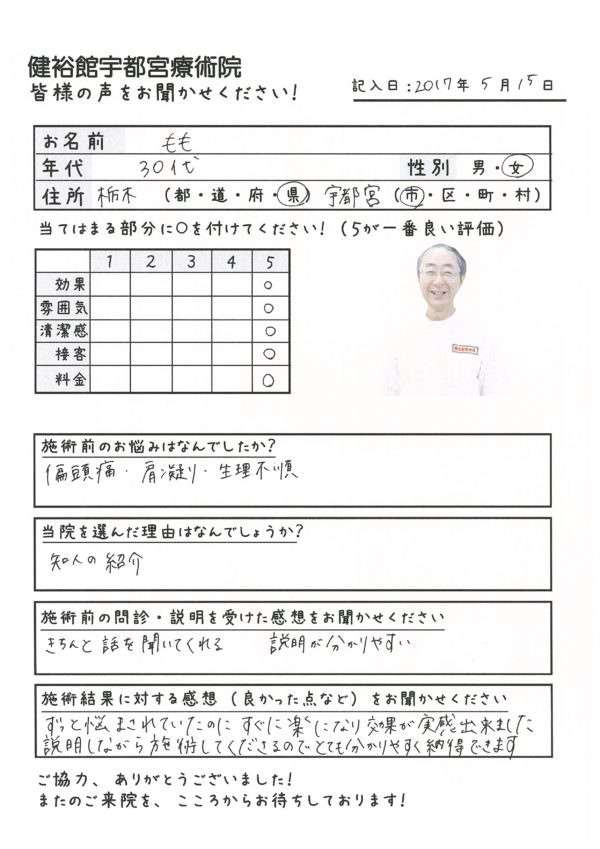 健裕館宇都宮療術院
皆様の声をお聞かせください!
記入日:2017年5月15日
お名前 もも
年代 30代 性別 男・女
住所 栃木 (都・道・府・県) 宇都宮 (市・区・町・村)
当てはまる部分に〇を付けてください!(5が一番良い評価)
1 2 3 4 5
効果 ○
雰囲気 ○
清潔感 ○
接客 ○
料金 ○
施術前のお悩みはなんでしたか?
偏頭痛・肩凝り・生理不順
当院を選んだ理由はなんでしょうか?
知人の紹介
施術前の問診・説明を受けた感想をお聞かせください
きちんと話を聞いてくれる 説明が分かりやすい
施術結果に対する感想(良かった点など)をお聞かせください
ずっと悩まされていたのにすぐに楽になり効果が実感出来ました
説明しながら施術してくださるのでとても分かりやすく納得できます
ご協力、ありがとうございました!
またのご来院を、こころからお待ちしております!